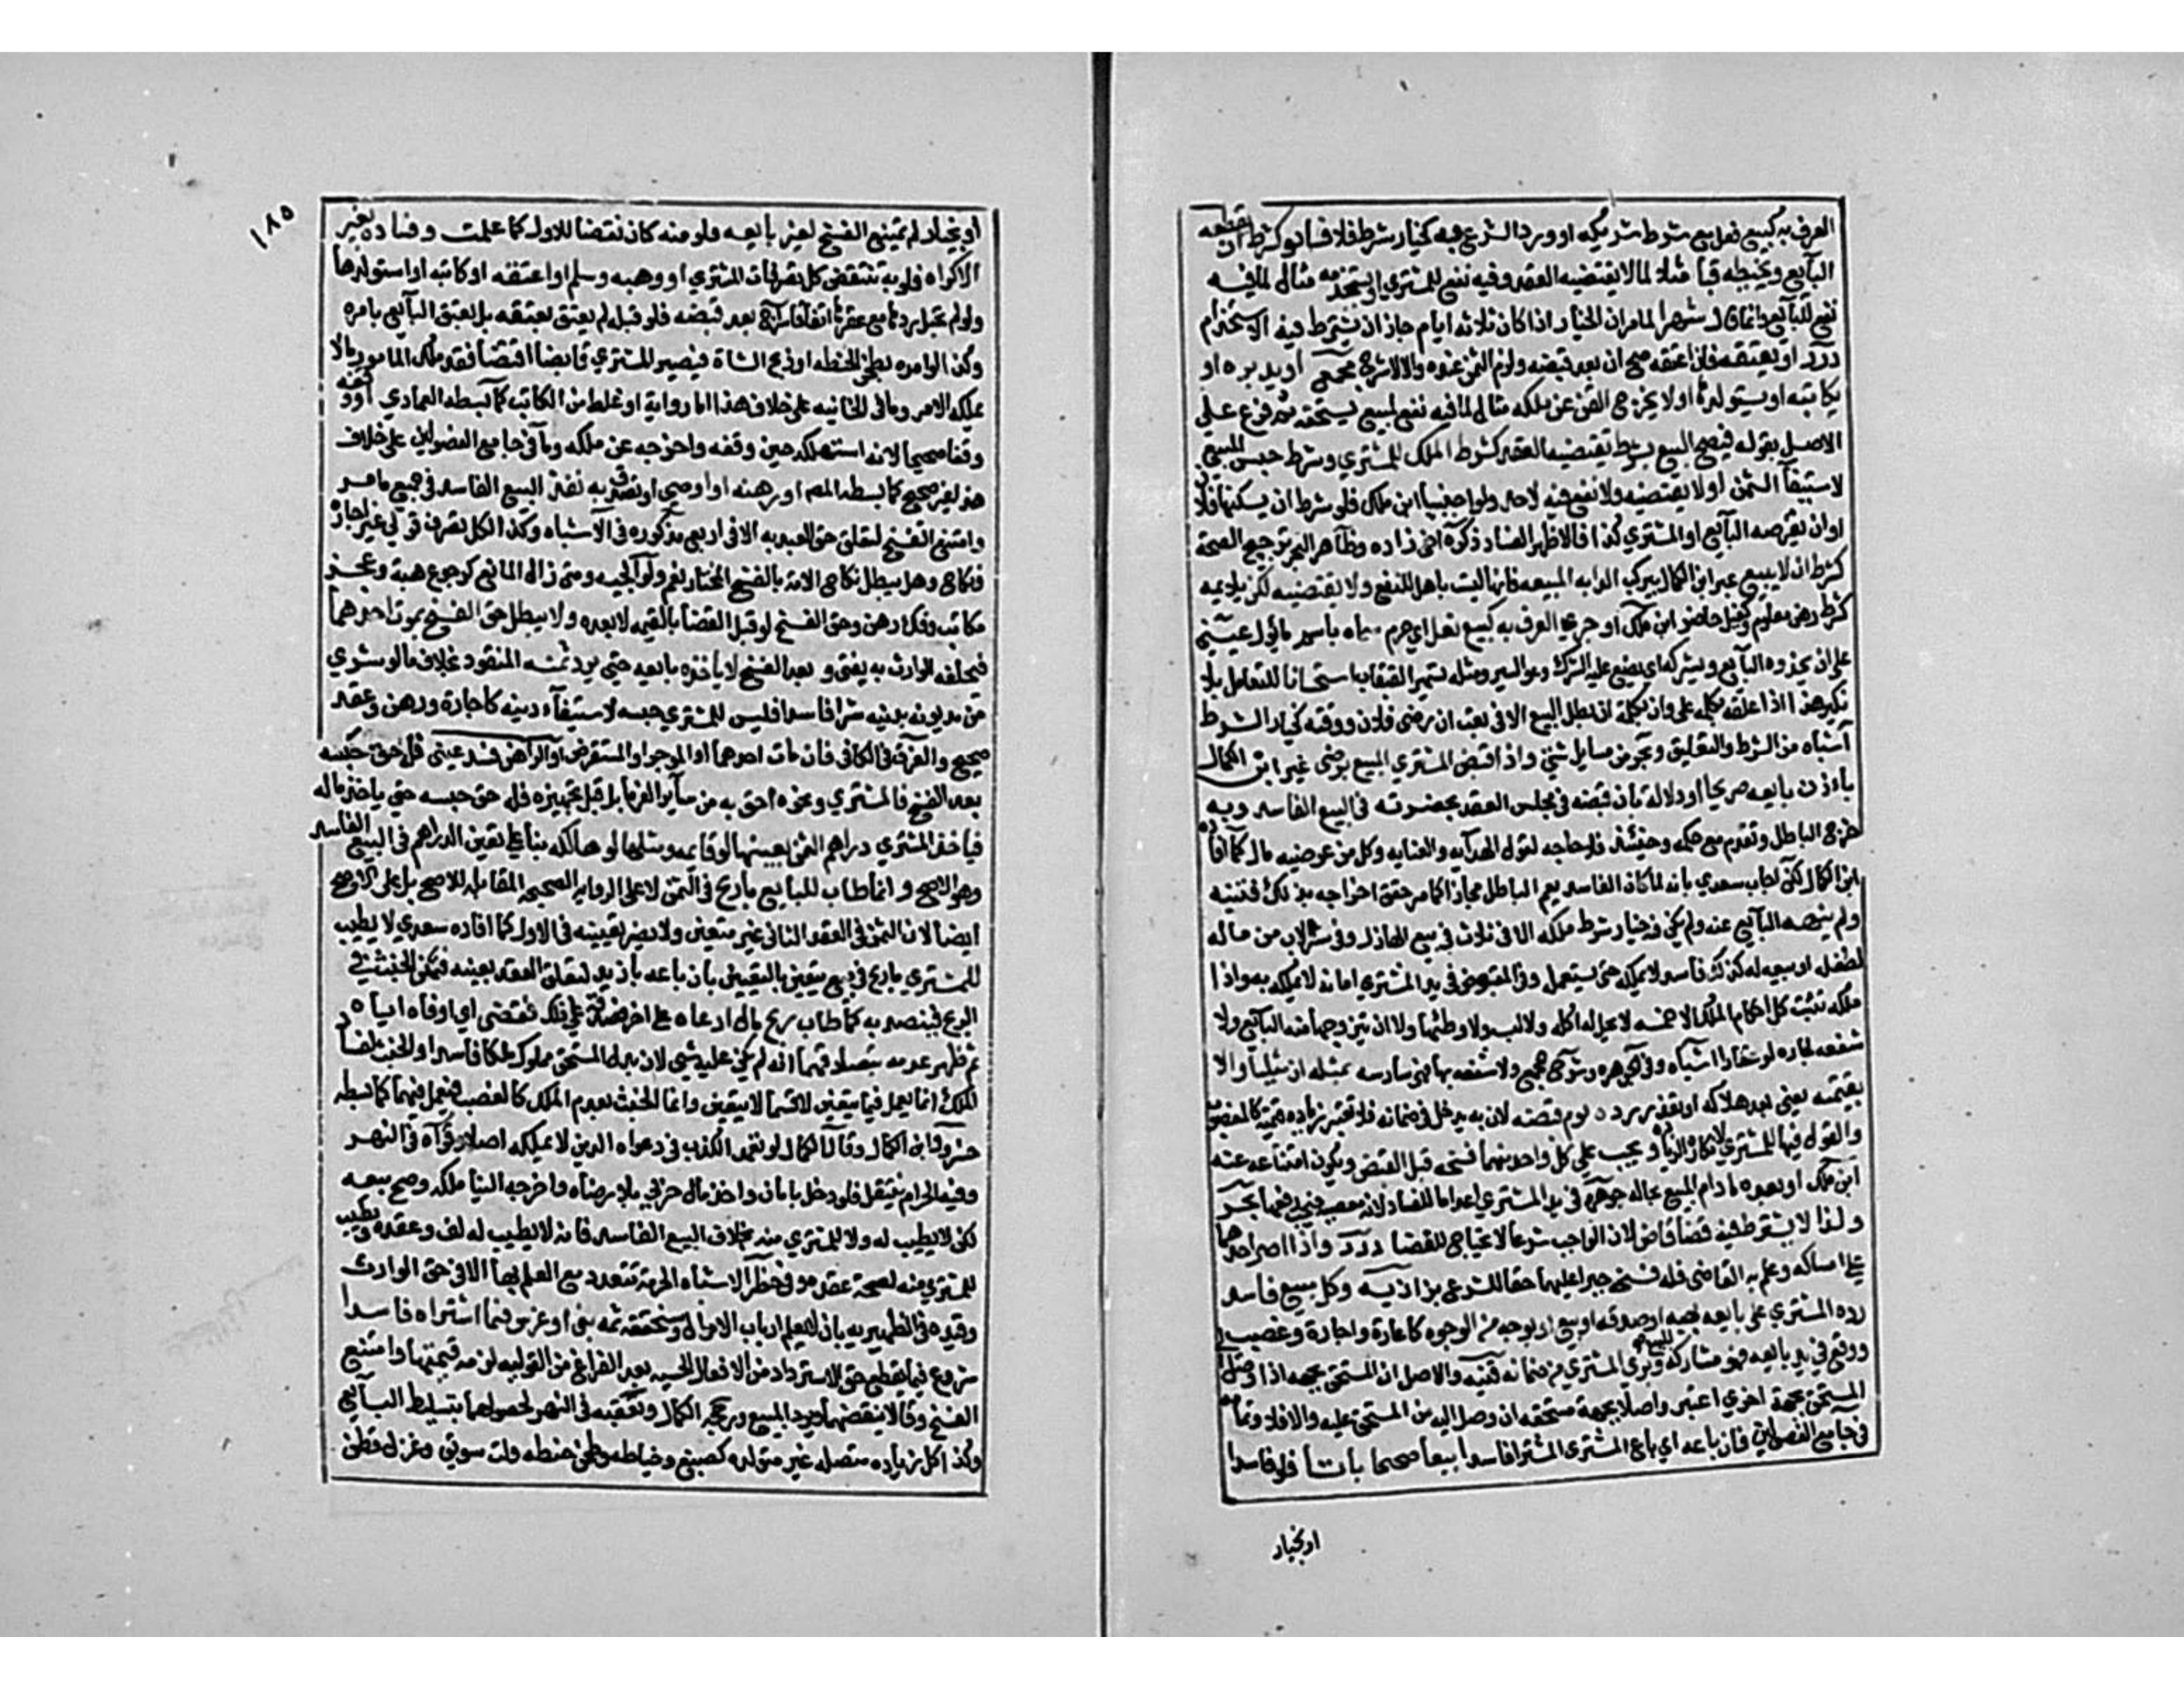 العرف به كبيع نعل مع شرط تشريكه او ورد الشرع به كخيار شرط فلا فساد كشرط ان يقطعه
البايع ويخيطه قبا مثال لما لا يقتضيه العقد وفيه نفع للمشتري او يستخدمه مثال لما فيه
نفع للبايع وانما قال شهرا لما مر ان الخيار اذا كان ثلاثة ايام جاز ان يشترط فيه الاستخدام
درر او يعتقه فان اعتقه صح ان بعد قبضه ولزم الثمن عنده والا لا شرح مجمع او يدبره او
يكاتبه او يستولدها او لا يخرج القن عن ملكه مثال لما فيه نفع لمبيع يستحقه ثم فرع على
الاصل بقوله فيصح البيع بشرط يقتضيه العقد كشرط الملك للمشتري وشرط حبس المبيع
لاستيفآ الثمن او لا يقتضيه ولا نفع فيه لاحد ولو اجنبيا ابن ملك فلو شرط ان يسكنها فلان
او ان يقرضه البايع او المشتري كذا فالاظهر الفساد ذكره اخي زاده وظاهر البحر ترجيح الصحة
كشرط ان لا يبيع عبر ابن الكمال بيركب الدابه المبيعه فانها ليست باهل للنفع ولا يقتضيه لكن يلايمه
كشرط رهن معلوم وكفيل حاضر ابن ملك او جرى العرف به كبيع نعل اي صرم سماه باسم ما يؤل عيني
على ان يحذوه البايع ويشركه اي يضع عليه الشراك وهو السير ومثله تسمير القبقاب استحسانا للتعامل بلا
نكير هذا اذا علقه بكلمة على وان بكلمة ان بطل البيع الا في بعت ان رضي فلان ووقته كخيار الشرط
اشباه من الشرط والتعليق وبحر من مسايل شتى واذا قبض المشتري المبيع برضى عبر ابن الكمال
باذن بايعه صريحا او دلالة بان قبضه في مجلس العقد بحضرته في البيع الفاسد وبه
خرج الباطل وتقدم مع حكمه وحينئذ فلا حاجه لقول الهدايه والعنايه وكل من عوضيه مال كما افاده
ابن الكمال لكن اجاب سعدي بانه لما كان الفاسد يعم الباطل مجازا كما مر حقق اخراجه بذلك فتنبه
ولم ينهه البايع عنه ولم يكن فيه خيار شرط ملكه الا في ثلاث في بيع الهازل وفي شرا الاب من ماله
لطفله او بيعه له كذلك فاسدا لا يملكه حتى يستعمل وفي المقبوض في يد المشتري امانه لا يملكه به واذا
ملكه تثبت كل احكام الملك الا خمسه لا يحل له اكله ولا لبسه ولا وطئها ولا ان يتزوجها منه البايع ولا
شفعه لجاره لو عقارا اشباه وفي الجوهره وشرح مجمع ولا شفعه بها فهي سادسه بمثله ان مثليا والا
بقيمته يعني بعد هلاكه او تعذر رده يوم قبضه لان به يدخل في ضمانه فلا تعتبر زياده قيمته كالمغصوب
والقول فيها للمشتري لانكاره الزياده ويجب على كل واحد منهما فسخه قبل القبض ويكون امتناعا عنه
ابن ملك او بعده ما دام المبيع بحاله جوهره في يد المشتري اعداما للفساد لانه معصيه فيجب رفعها بحر
ولذا لا يشترط فيه قضا قاض لان الواجب شرعا لا يحتاج للقضا درر واذا اصر احدهما
على امساكه وعلم به القاضي فله فسخه جبرا عليهما حقا للشرع بزازيه وكل مبيع فاسد
رده المشتري على بايعه بهبه او صدقه او بيع او بوجه من الوجوه كاعارة واجارة وغصب
ووقع في يد بايعه فهو متاركة للبيع وبرئ المشتري من ضمانه قنيه والاصل ان المستحق بجهه اذا وصل الى
المستحق بجهة اخرى اعتبر واصلا بجهة مستحقه ان وصل اليه من المستحق عليه والا فلا وتمامه
في جامع الفصولين فان باعه اي باع المشتري المشترا فاسدا بيعا صحيحا باتا فلو فاسدا
او بخيار
١٨٥
او بخيار لم يمتنع الفسخ لغير بايعه فلو منه كان نقضا للاول كما علمت وفساده بغير
الاكراه فلو به تنتقض كل تصرفات المشتري او وهبه وسلم او اعتقه او كاتبه او استولدها
ولو لم تحبل ردها مع عقرها اتفاقا سراج بعد قبضه فلو قبله لم يعتق بعتقه بل بعتق البايع بامره
وكذا لو امره بطحن الحنطه او ذبح الشاة فيصير المشتري قابضا اقتضا فقد ملك المامور ما لا
يملكه الامر وما في الخانيه على خلاف هذا اما رواية او غلط من الكاتب كما بسطه العمادي او وقفه
وقفا صحيحا لانه استهلكه حين وقفه واخرجه عن ملكه وما في جامع الفصولين على خلاف
هذا غير صحيح كما بسطه المص او رهنه او اوصى او تصدق به نفذ البيع الفاسد في جميع ما مر
وامتنع الفسخ لتعلق حق العبد به الا في اربع مذكوره في الاشباه وكذا كل تصرف قولي غير اجازة
ونكاح وهل يبطل نكاح الامة بالفسخ المختار نعم ولوالجيه ومتى زال المانع كرجوع هبة وعجز
مكاتب وفك رهن وحق الفسخ لو قبل القضا بالقيمه لا بعده ولا يبطل حق الفسخ بموت احدهما
فيخلفه الوارث به يفتى و بعد الفسخ لا ياخذه بايعه حتى يرد ثمنه المنقود بخلاف ما لو شرى
من مديونه بدينه شرا فاسدا فليس للمشتري حبسه لاستيفآء دينه كاجارة ورهن وعقد
صحيح والفرق في الكافي فان مات احدهما او الموجر او المستقرض او الراهن فسد عيني فله حق حبسه
بعد الفسخ فالمشتري ونحوه احق به من سآير الغرما بل قبل تجهيزه فله حق حبسه حتى ياخذ ماله
فياخذ المشتري دراهم الثمن بعينها لو قايمه ومثلها لو هالكه بنا على تعين الدراهم في البيع الفاسد
وهو الاصح و انما طاب للبايع ما ربح في الثمن لا على الروايه الصحيحه المقابله للاصح بل على الاصح
ايضا لان الثمن في العقد الثاني غير متعين ولا يضر تعيينه في الاول كما افاده سعدي لا يطيب
للمشتري ما ربح في بيع يتعين بالتعيين بان باعه بازيد لتعلق العقد بعينه فتمكن الخبث في
الربح فيتصدق به كما طاب ربح مال ادعاه على اخر فصدقه على ذلك فقضى اي اوفاه اياه
ثم ظهر عدمه بتصادقهما انه لم يكن عليه شي لان بدل المستحق مملوك ملكا فاسدا والخبث لفساد
الملك انما يعمل فيما يتعين لا فيما لا يتعين واما الخبث لعدم الملك كالغصب فيعمل فيهما كما بسطه
خسرو وابن الكمال وقال الكمال لو تعمد الكذب في دعواه الدين لا يملكه اصلا وقواه في النهر
وفيه الحرام ينتقل فلو دخل بامان واخذ مال حربي بلا رضاه واخرجه الينا ملكه وصح بيعه
لكن لا يطيب له ولا للمشتري منه بخلاف البيع الفاسد فانه لا يطيب له لفساد عقده ويطيب
للمشتري منه لصحة عقده وفي حظر الاشباه الحرمة تتعدد مع العلم بها الا في حق الوارث
وقيده في الظهيريه بان لا يعلم ارباب الاموال وسنحققه ثمه بنى او غرس فيما اشتراه فاسدا
شروع فيما يقطع حق الاسترداد من الافعال الحسيه بعد الفراغ من القوليه لزمه قيمتها وامتنع
الفسخ وقالا ينقضهما ويرد المبيع ورجحه الكمال وتعقبه في النهر لحصولهما بتسليط البايع
وكذا كل زياده متصله غير متولده كصبغ وخياطه وطحن حنطه ولت سويق وغزل قطن